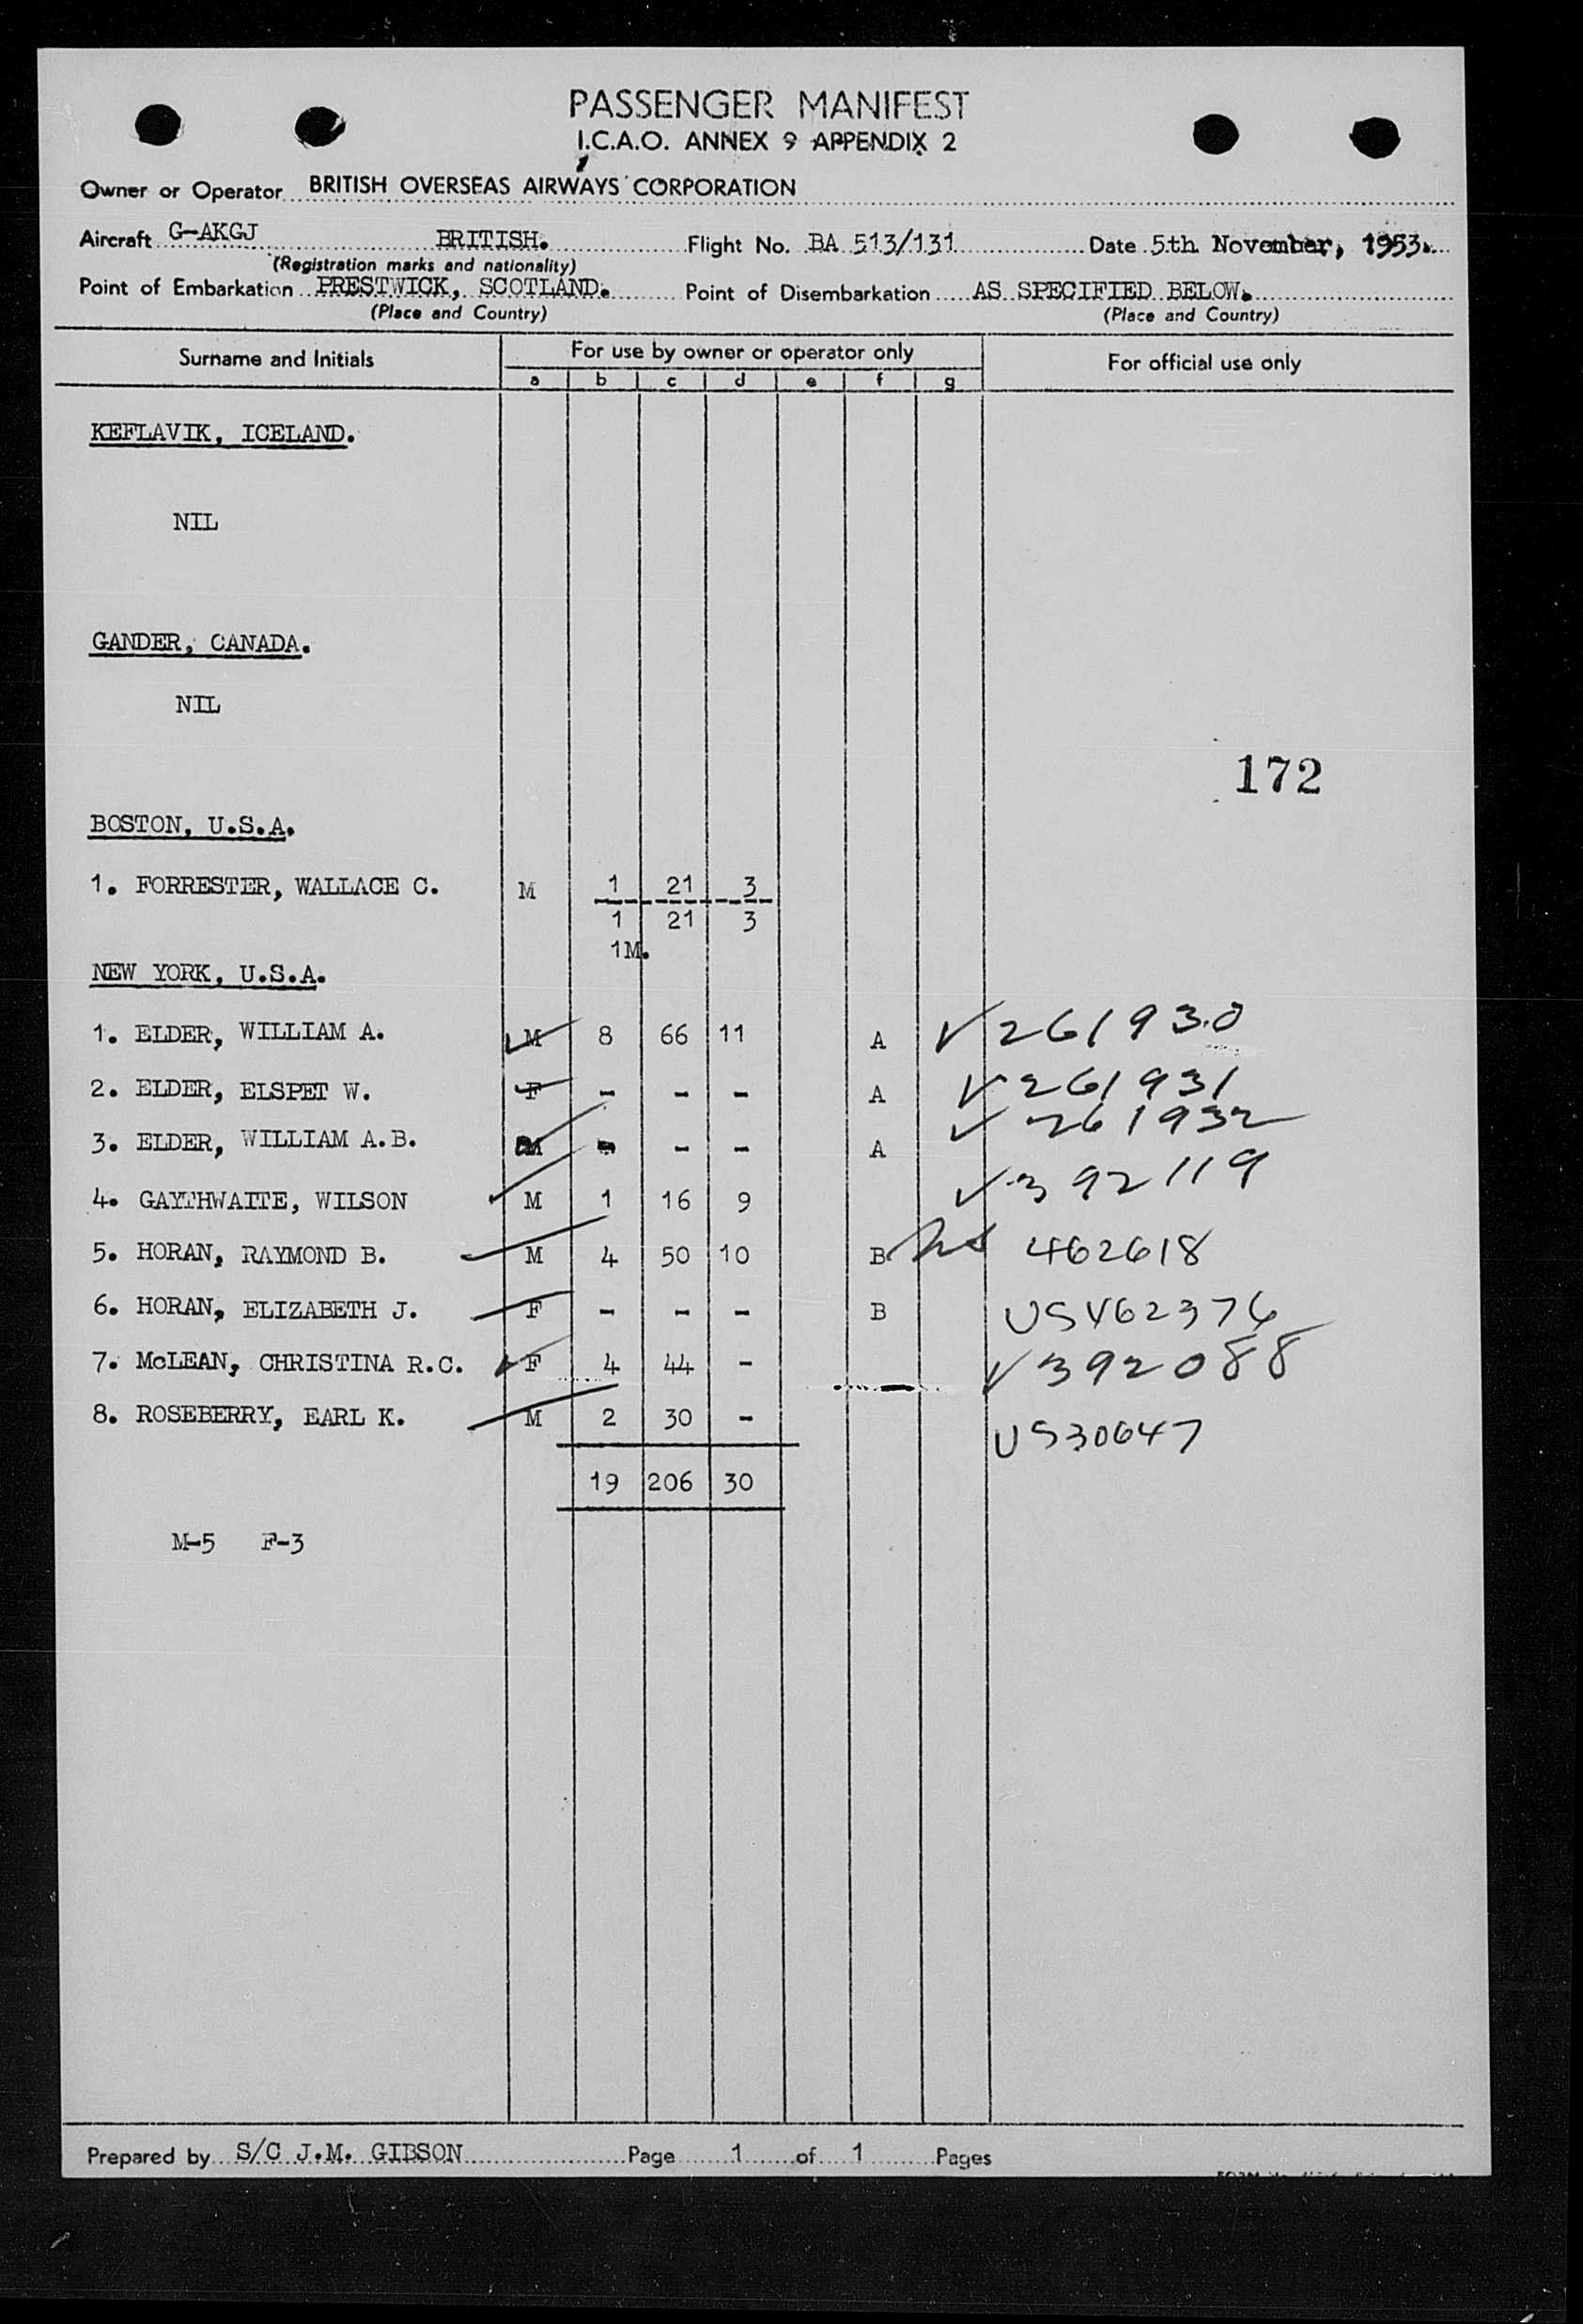 PASSENGER MANIFEST
I.C.A.O. ANNEX 9 APPENDIX 2
Owner or Operator BRITISH OVERSEAS AIRWAYS CORPORATION
Aircraft G-AKGJ BRITISH. Flight No. BA 513/131 Date 5th November, 1953.
(Registration marks and nationality)
Point of Embarkation PRESTWICK, SCOTLAND. Point of Disembarkation AS SPECIFIED BELOW.
(Place and Country) (Place and Country)
Surname and Initials For use by owner or operator only For official use only
a b c d e f g
KEFLAVIK, ICELAND.
NIL
GANDER, CANADA.
NIL
172
BOSTON, U.S.A.
1. FORRESTER, WALLACE C. M 1 21 3
1 21 3
1M.
NEW YORK, U.S.A.
1. ELDER, WILLIAM A. M 8 66 11 A V 261930
2. ELDER, ELSPET W. F - - - A V 261931
3. ELDER, WILLIAM A.B. M - - - A V 261932
4. GAYTHWAITE, WILSON M 1 16 9 V 392119
5. HORAN, RAYMOND B. M 4 50 10 B US 462618
6. HORAN, ELIZABETH J. F - - - B US 462376
7. McLEAN, CHRISTINA R.C. F 4 44 - V 392088
8. ROSEBERRY, EARL K. M 2 30 - US30647
19 206 30
M-5 F-3
Prepared by S/C J.M. GIBSON Page 1 of 1 Pages